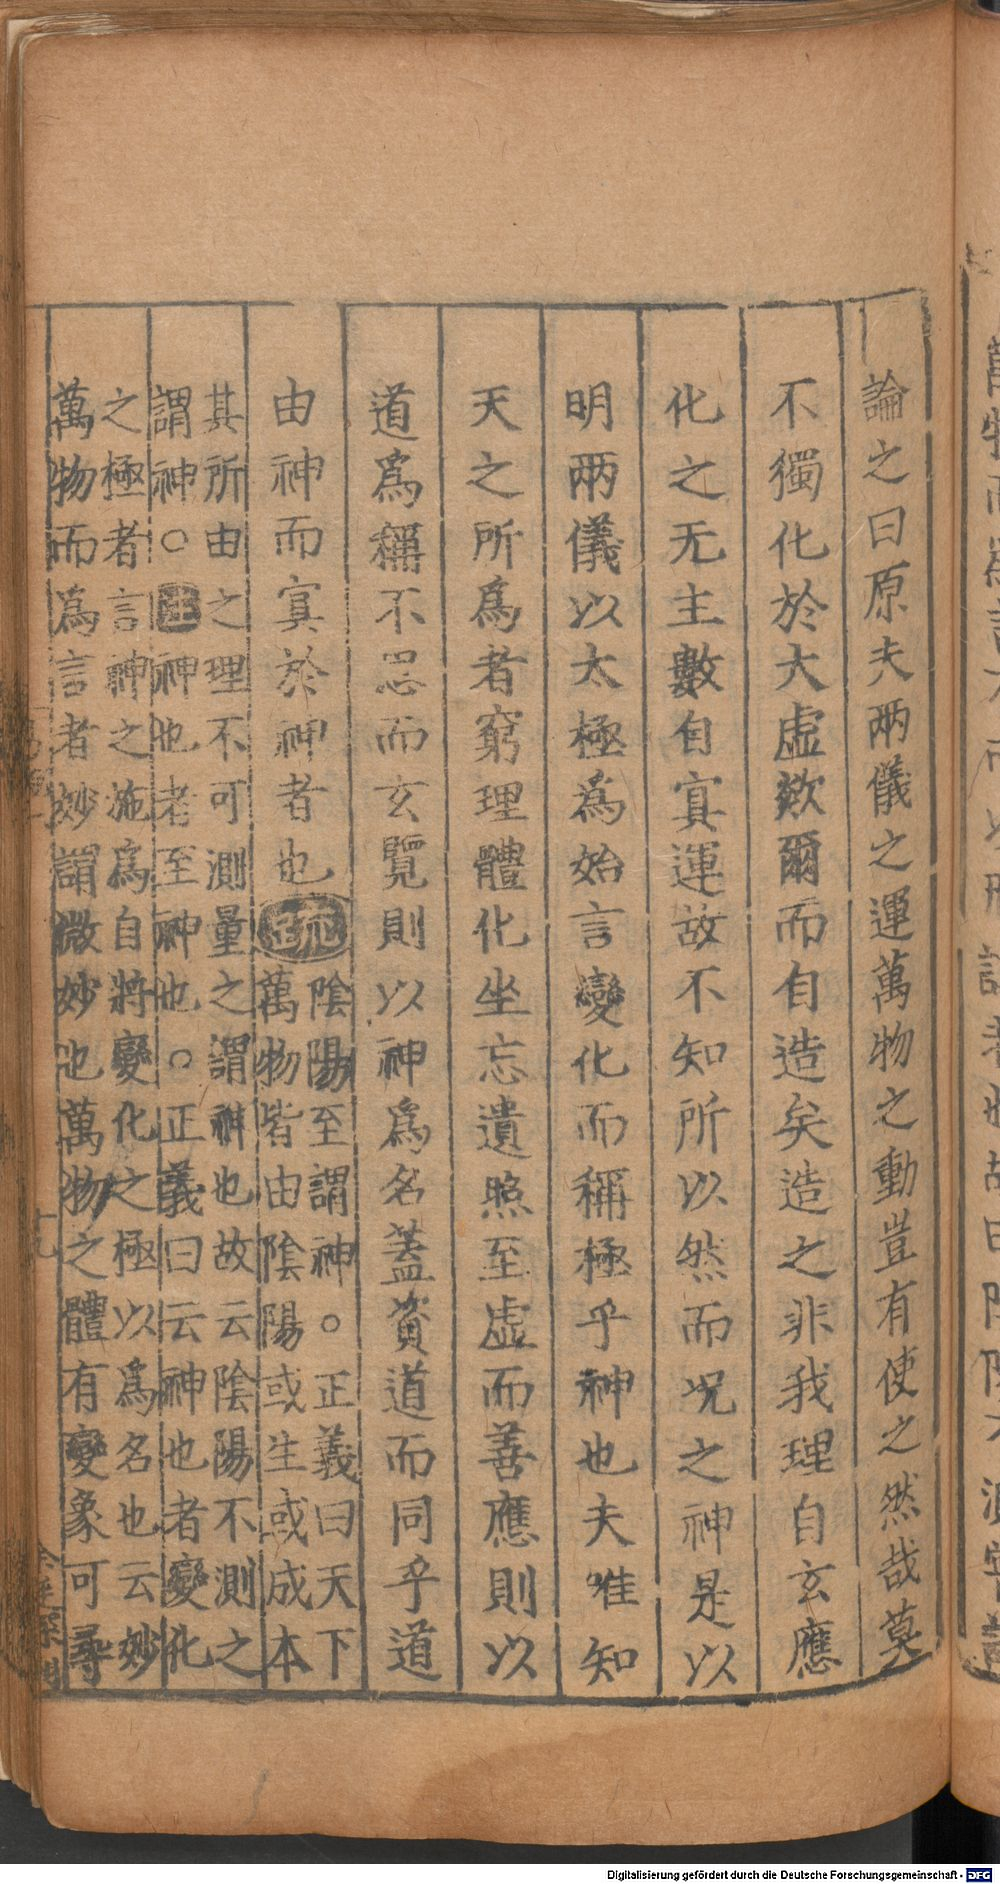 論之曰原夫兩儀之運萬物之動豈有使之然哉莫
不獨化於大虛欻爾而自造矣造之非我理自玄應
化之无主數自冥運故不知所以然而况之神是以
明兩儀以太極爲始言變化而稱極乎神也夫唯知
天之所爲者窮理體化坐忘遺照至虛而善應則以
道爲稱不思而玄覽則以神爲名蓋資道而同乎道
由神而冥於神者也
疏
陰陽至謂神○正義曰天下
萬物皆由陰陽或生或成本
其所由之理不可測量之謂神也故云陰陽不測之
謂神○注神也者至神也○正義曰云神也者變化
之極者言神之施爲自將變化之極以爲名也云妙
萬物而爲言者妙謂微妙也萬物之體有變象可尋
十九
Digitalisierung gefördert durch die Deutsche Forschungsgemeinschaft - DFG